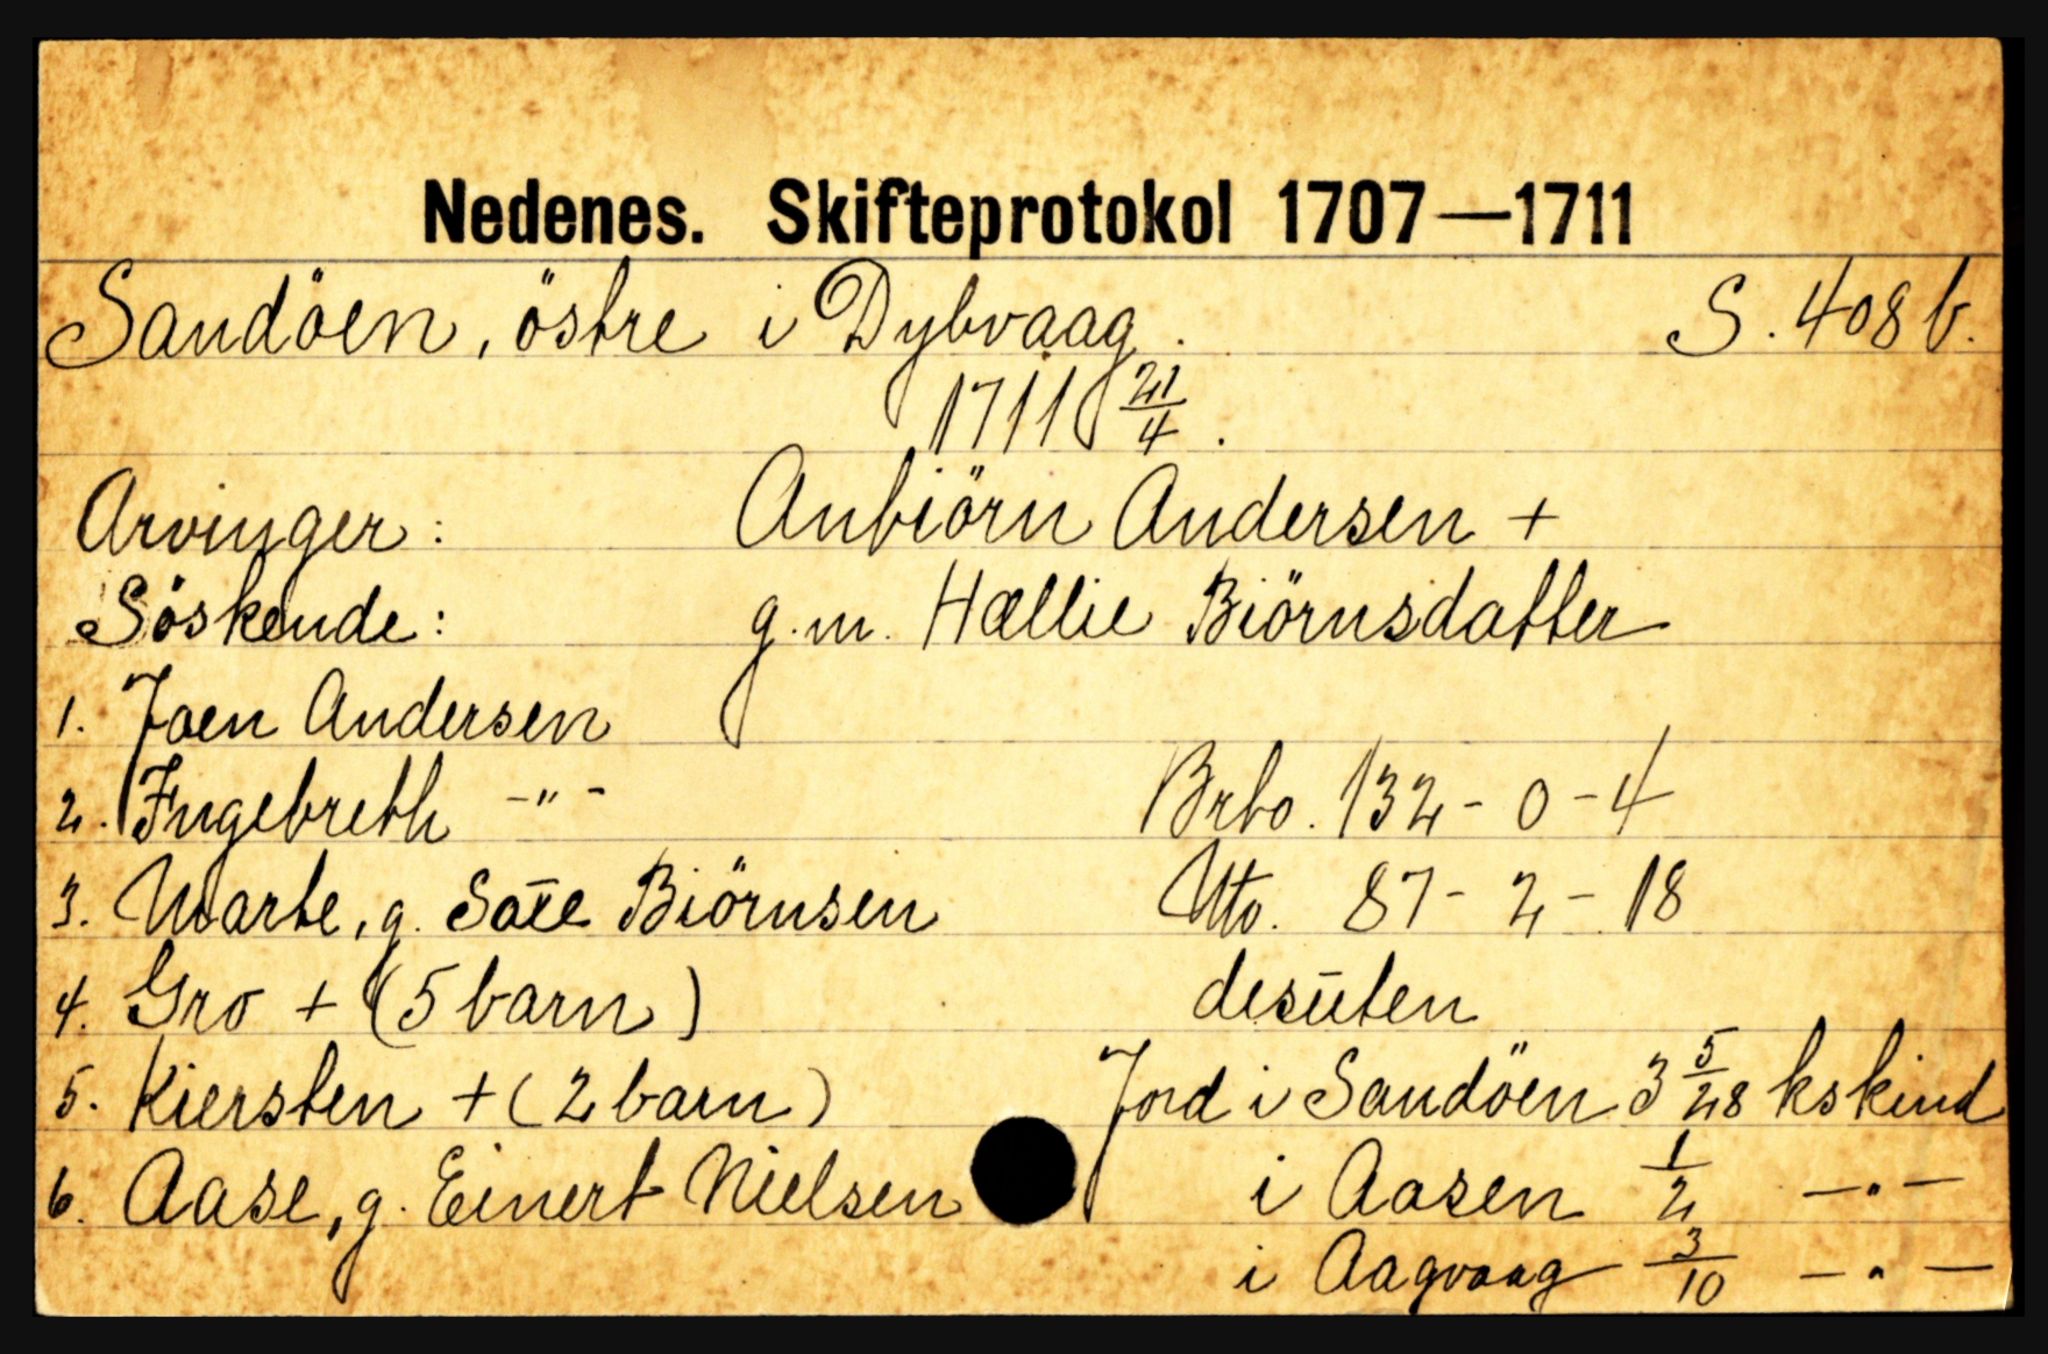 Nedenes. Skifteprotokol 1707—1711
Sandöen, östre i Dybvaag. S. 408 b.
1711 21/4.
Arvinger: Anbiörn Andersen +
Söskende: g.m. Hællie Biörnsdatter
1. Joen Andersen
2. Ingebreth -"- Brbo. 132 - 0 - 4
3. Marte, g. Saxe Biörnsen Nto. 87 - 2 - 18
4. Gro + (5 barn) desūten
5. Kiersten + (2 barn) Jord i Sandöen 3 5/28 kskind
6. Aase, g. Einert Nielsen i Aasen 1/2 —"—
i Aagvaag 3/10 —"—